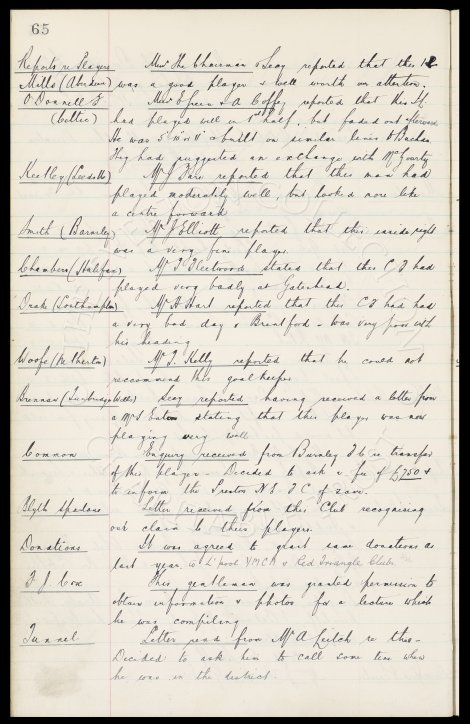 65
Reports re Players Messrs The Chairman & Secy reported that this I.R
Mills (Aberdeen) was a good player & well worth our attention.
O'Donnell F Messrs Green & A Coffey reported that this I.L.
(Celtic) had played well in 1st half, but faded out afterwards
He was 5' 10" or 11" & built on similar lines to Buchan
They had suggested an exchange with McGourty
Keetley (Leeds Utd) Mr J Tare reported that this man had
played moderately well, but looked more like
a centre forward
Smith (Barnsley) Mr J Elliott reported that this inside right
was a very fine player
Chambers (Halifax) Mr T Fleetwood stated that this C F had
played very badly at Gateshead.
Drake (Southampton) Mr H Hart reported that this C F had had
a very bad day v Brentford - was very poor with
his heading
Woofe (Netherton) Mr T Kelly reported that he could not
recommend this goal-keeper
Brennan (Tunbridge Wells) Secy reported having received a letter from
a Mr J Eaton stating that this player was now
playing very well
Common Enquiry received from Burnley F C re transfer
of this player - Decided to ask a fee of £750 &
to inform the Preston N.E. F C of same.
Blyth Spartans Letter received from this Club recognising
our claim to their players.
Donations It was agreed to grant same donations as
last year to L'pool YMCA & Red Triangle Club.
F. J. Cox This gentleman was granted permission to
obtain information & photos for a lecture which
he was compiling
Tunnel Letter read from Mr A Leitch re this -
Decided to ask him to call some time when
he was in the district.